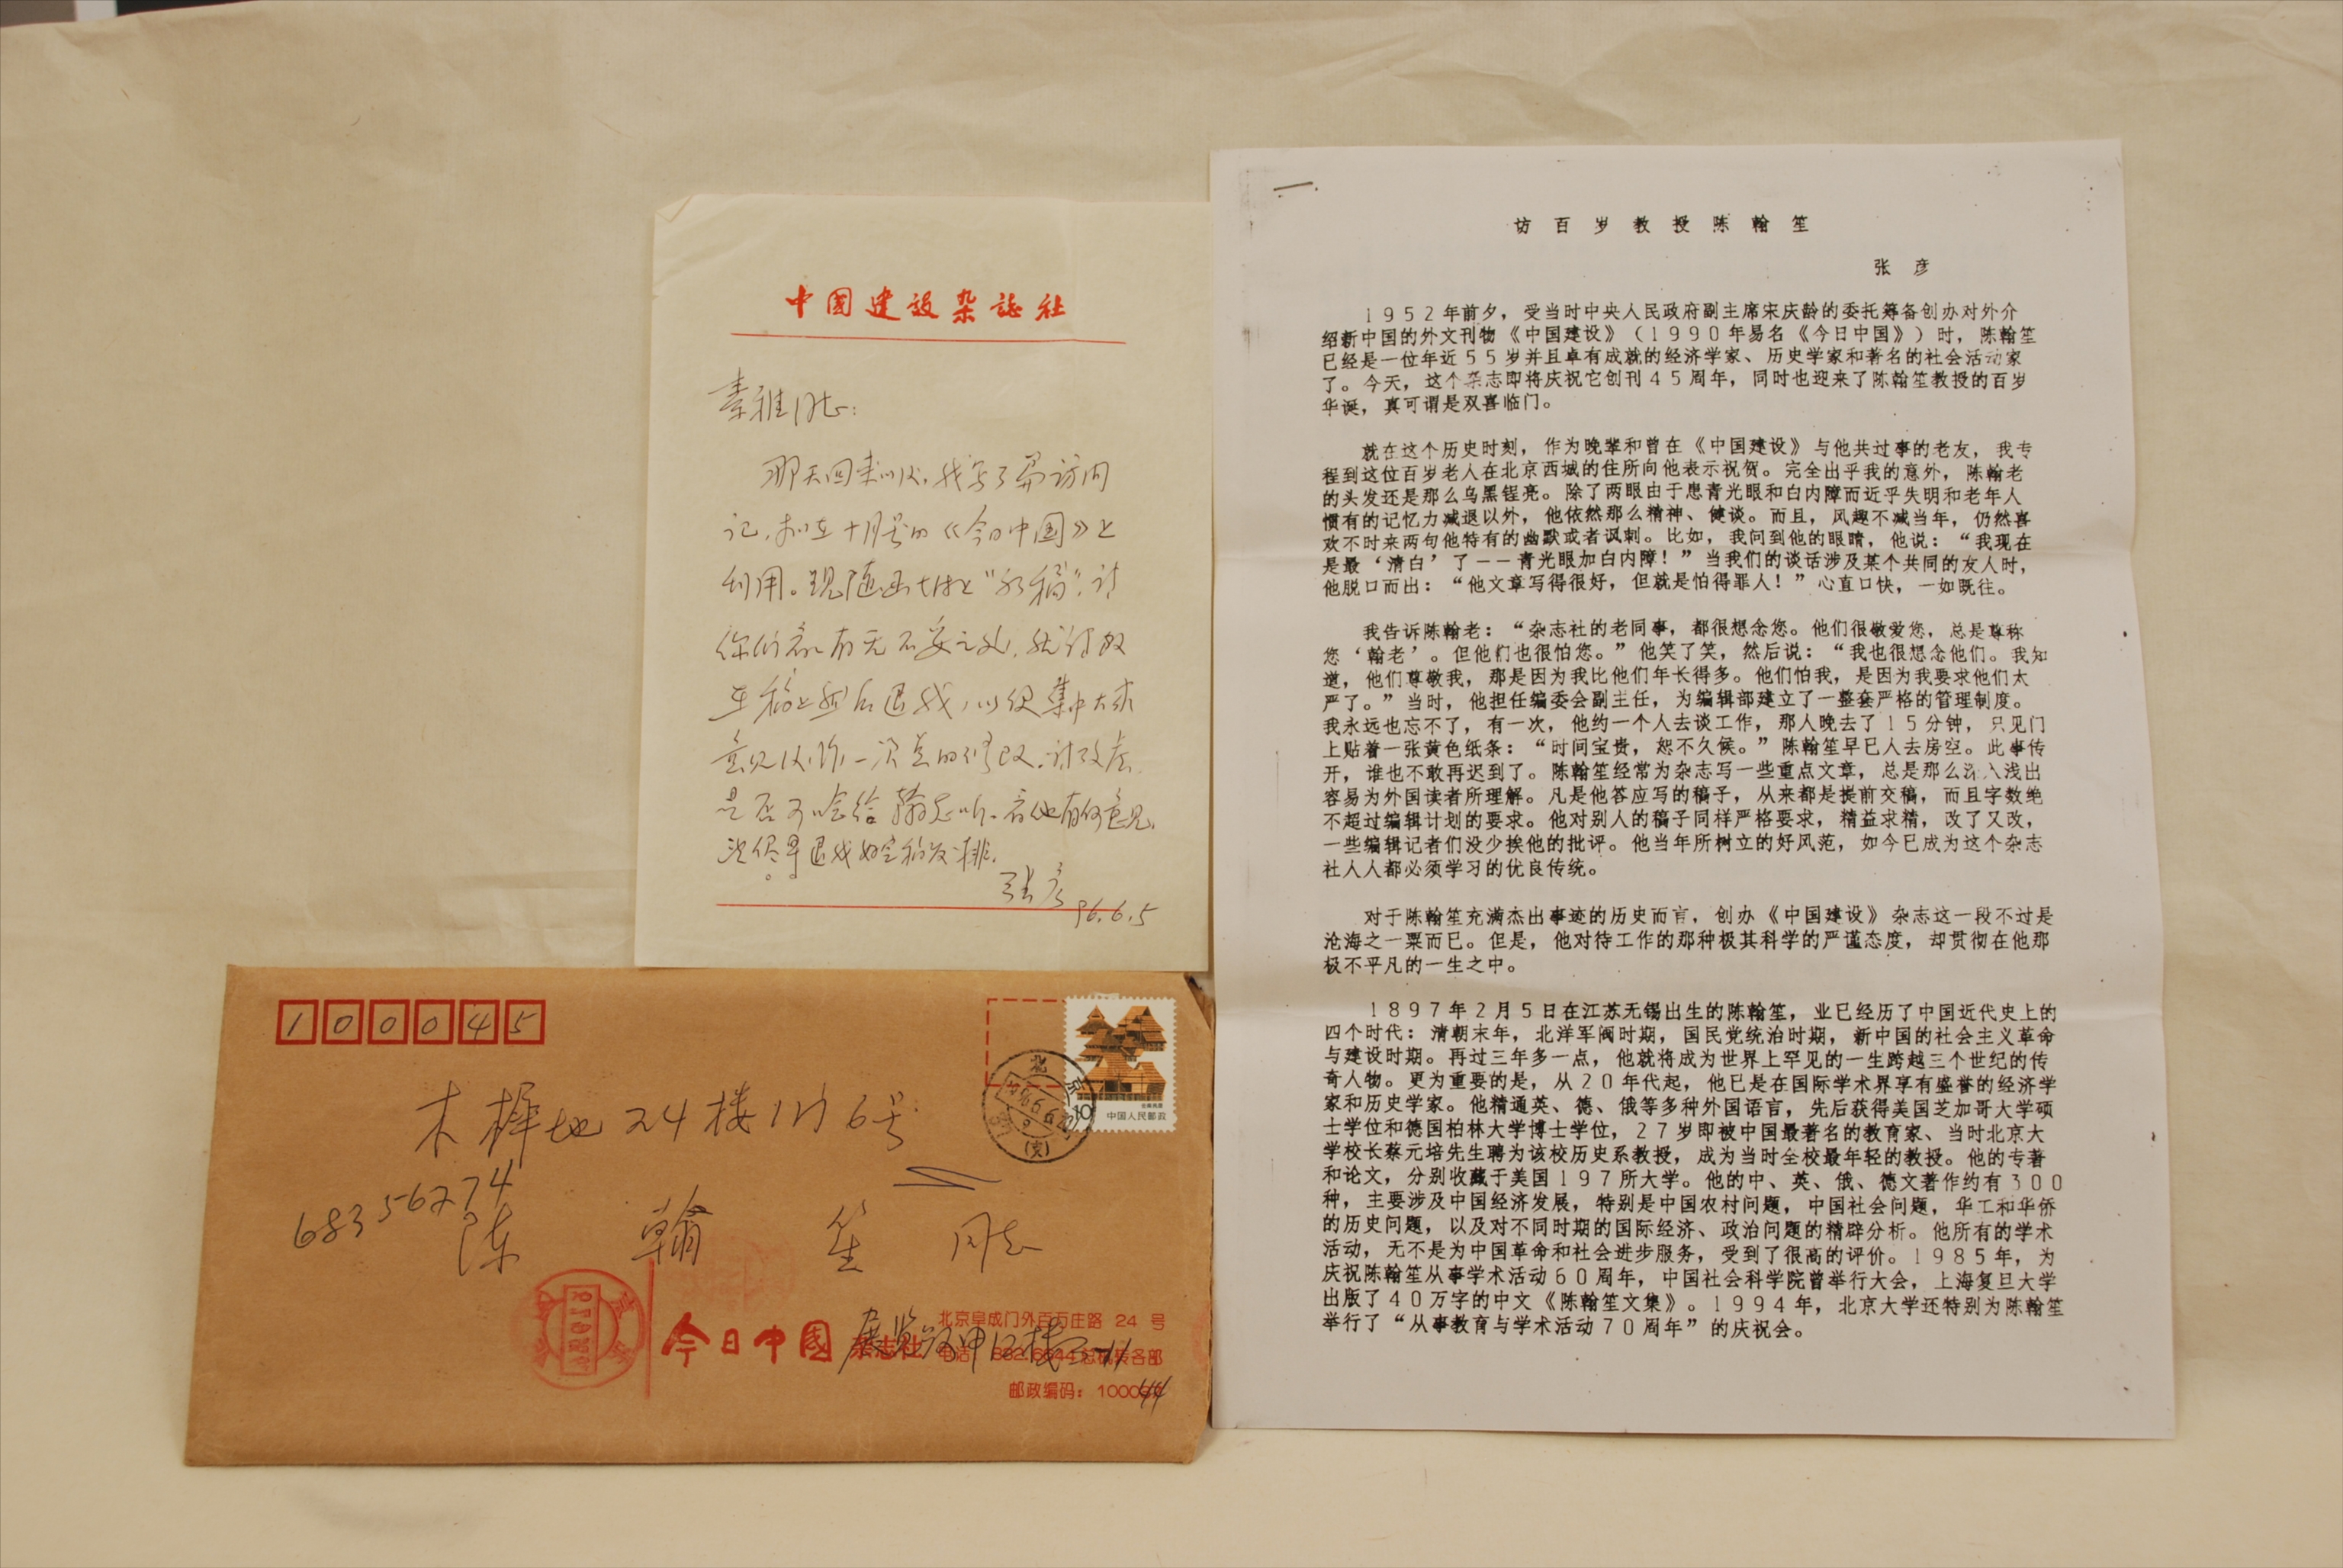 中國建設杂誌社
素雅同志:
那天回来以后,我写了篇访问
记,拟在十月号的《今日中国》上
刊用。现随函附上“初稿”,请
你们看看有无不妥之处,就请改
在稿上然后退我,以便集中大家
意见后,作一次总的修改。请考虑
是否可唸给翰老听,看他有何意见。
没尽早退我好定稿发排。
张彦
96.6.5
访百岁教授陈翰笙
张彦
1952年前夕,受当时中央人民政府副主席宋庆龄的委托筹备创办对外介
绍新中国的外文刊物《中国建设》(1990年易名《今日中国》)时,陈翰笙
已经是一位年近55岁并且卓有成就的经济学家、历史学家和著名的社会活动家
了。今天,这个杂志即将庆祝它创刊45周年,同时也迎来了陈翰笙教授的百岁
华诞,真可谓是双喜临门。
就在这个历史时刻,作为晚辈和曾在《中国建设》与他共过事的老友,我专
程到这位百岁老人在北京西城的住所向他表示祝贺。完全出乎我的意外,陈翰老
的头发还是那么乌黑锃亮。除了两眼由于患青光眼和白内障而近乎失明和老年人
惯有的记忆力减退以外,他依然那么精神、健谈。而且,风趣不减当年,仍然喜
欢不时来两句他特有的幽默或者讽刺。比如,我问到他的眼睛,他说:“我现在
是最‘清白’了——青光眼加白内障!”当我们的谈话涉及某个共同的友人时,
他脱口而出:“他文章写得很好,但就是怕得罪人!”心直口快,一如既往。
我告诉陈翰老:“杂志社的老同事,都很想念您。他们很敬爱您,总是尊称
您‘翰老’。但他们也很怕您。”他笑了笑,然后说:“我也很想念他们。我知
道,他们尊敬我,那是因为我比他们年长得多。他们怕我,是因为我要求他们太
严了。”当时,他担任编委会副主任,为编辑部建立了一整套严格的管理制度。
我永远也忘不了,有一次,他约一个人去谈工作,那人晚去了15分钟,只见门
上贴着一张黄色纸条:“时间宝贵,恕不久候。”陈翰笙早已人去房空。此事传
开,谁也不敢再迟到了。陈翰笙经常为杂志写一些重点文章,总是那么深入浅出
容易为外国读者所理解。凡是他答应写的稿子,从来都是提前交稿,而且字数绝
不超过编辑计划的要求。他对别人的稿子同样严格要求,精益求精,改了又改,
一些编辑记者们没少挨他的批评。他当年所树立的好风范,如今已成为这个杂志
社人人都必须学习的优良传统。
对于陈翰笙充满杰出事迹的历史而言,创办《中国建设》杂志这一段不过是
沧海之一粟而已。但是,他对待工作的那种极其科学的严谨态度,却贯彻在他那
极不平凡的一生之中。
1897年2月5日在江苏无锡出生的陈翰笙,业已经历了中国近代史上的
四个时代:清朝末年,北洋军阀时期,国民党统治时期,新中国的社会主义革命
与建设时期。再过三年多一点,他就将成为世界上罕见的一生跨越三个世纪的传
奇人物。更为重要的是,从20年代起,他已是在国际学术界享有盛誉的经济学
家和历史学家。他精通英、德、俄等多种外国语言,先后获得美国芝加哥大学硕
士学位和德国柏林大学博士学位,27岁即被中国最著名的教育家、当时北京大
学校长蔡元培先生聘为该校历史系教授,成为当时全校最年轻的教授。他的专著
和论文,分别收藏于美国197所大学。他的中、英、俄、德文著作约有300
种,主要涉及中国经济发展,特别是中国农村问题,中国社会问题,华工和华侨
的历史问题,以及对不同时期的国际经济、政治问题的精辟分析。他所有的学术
活动,无不是为中国革命和社会进步服务,受到了很高的评价。1985年,为
庆祝陈翰笙从事学术活动60周年,中国社会科学院曾举行大会,上海复旦大学
出版了40万字的中文《陈翰笙文集》。1994年,北京大学还特别为陈翰笙
举行了“从事教育与学术活动70周年”的庆祝会。
100045
北京
10
中国人民邮政
木樨地24楼1门6号
68356274
陈翰笙同志
北京阜成门外百万庄路24号
今日中國杂志社
电话 总机转各部
邮政编码:1000
44